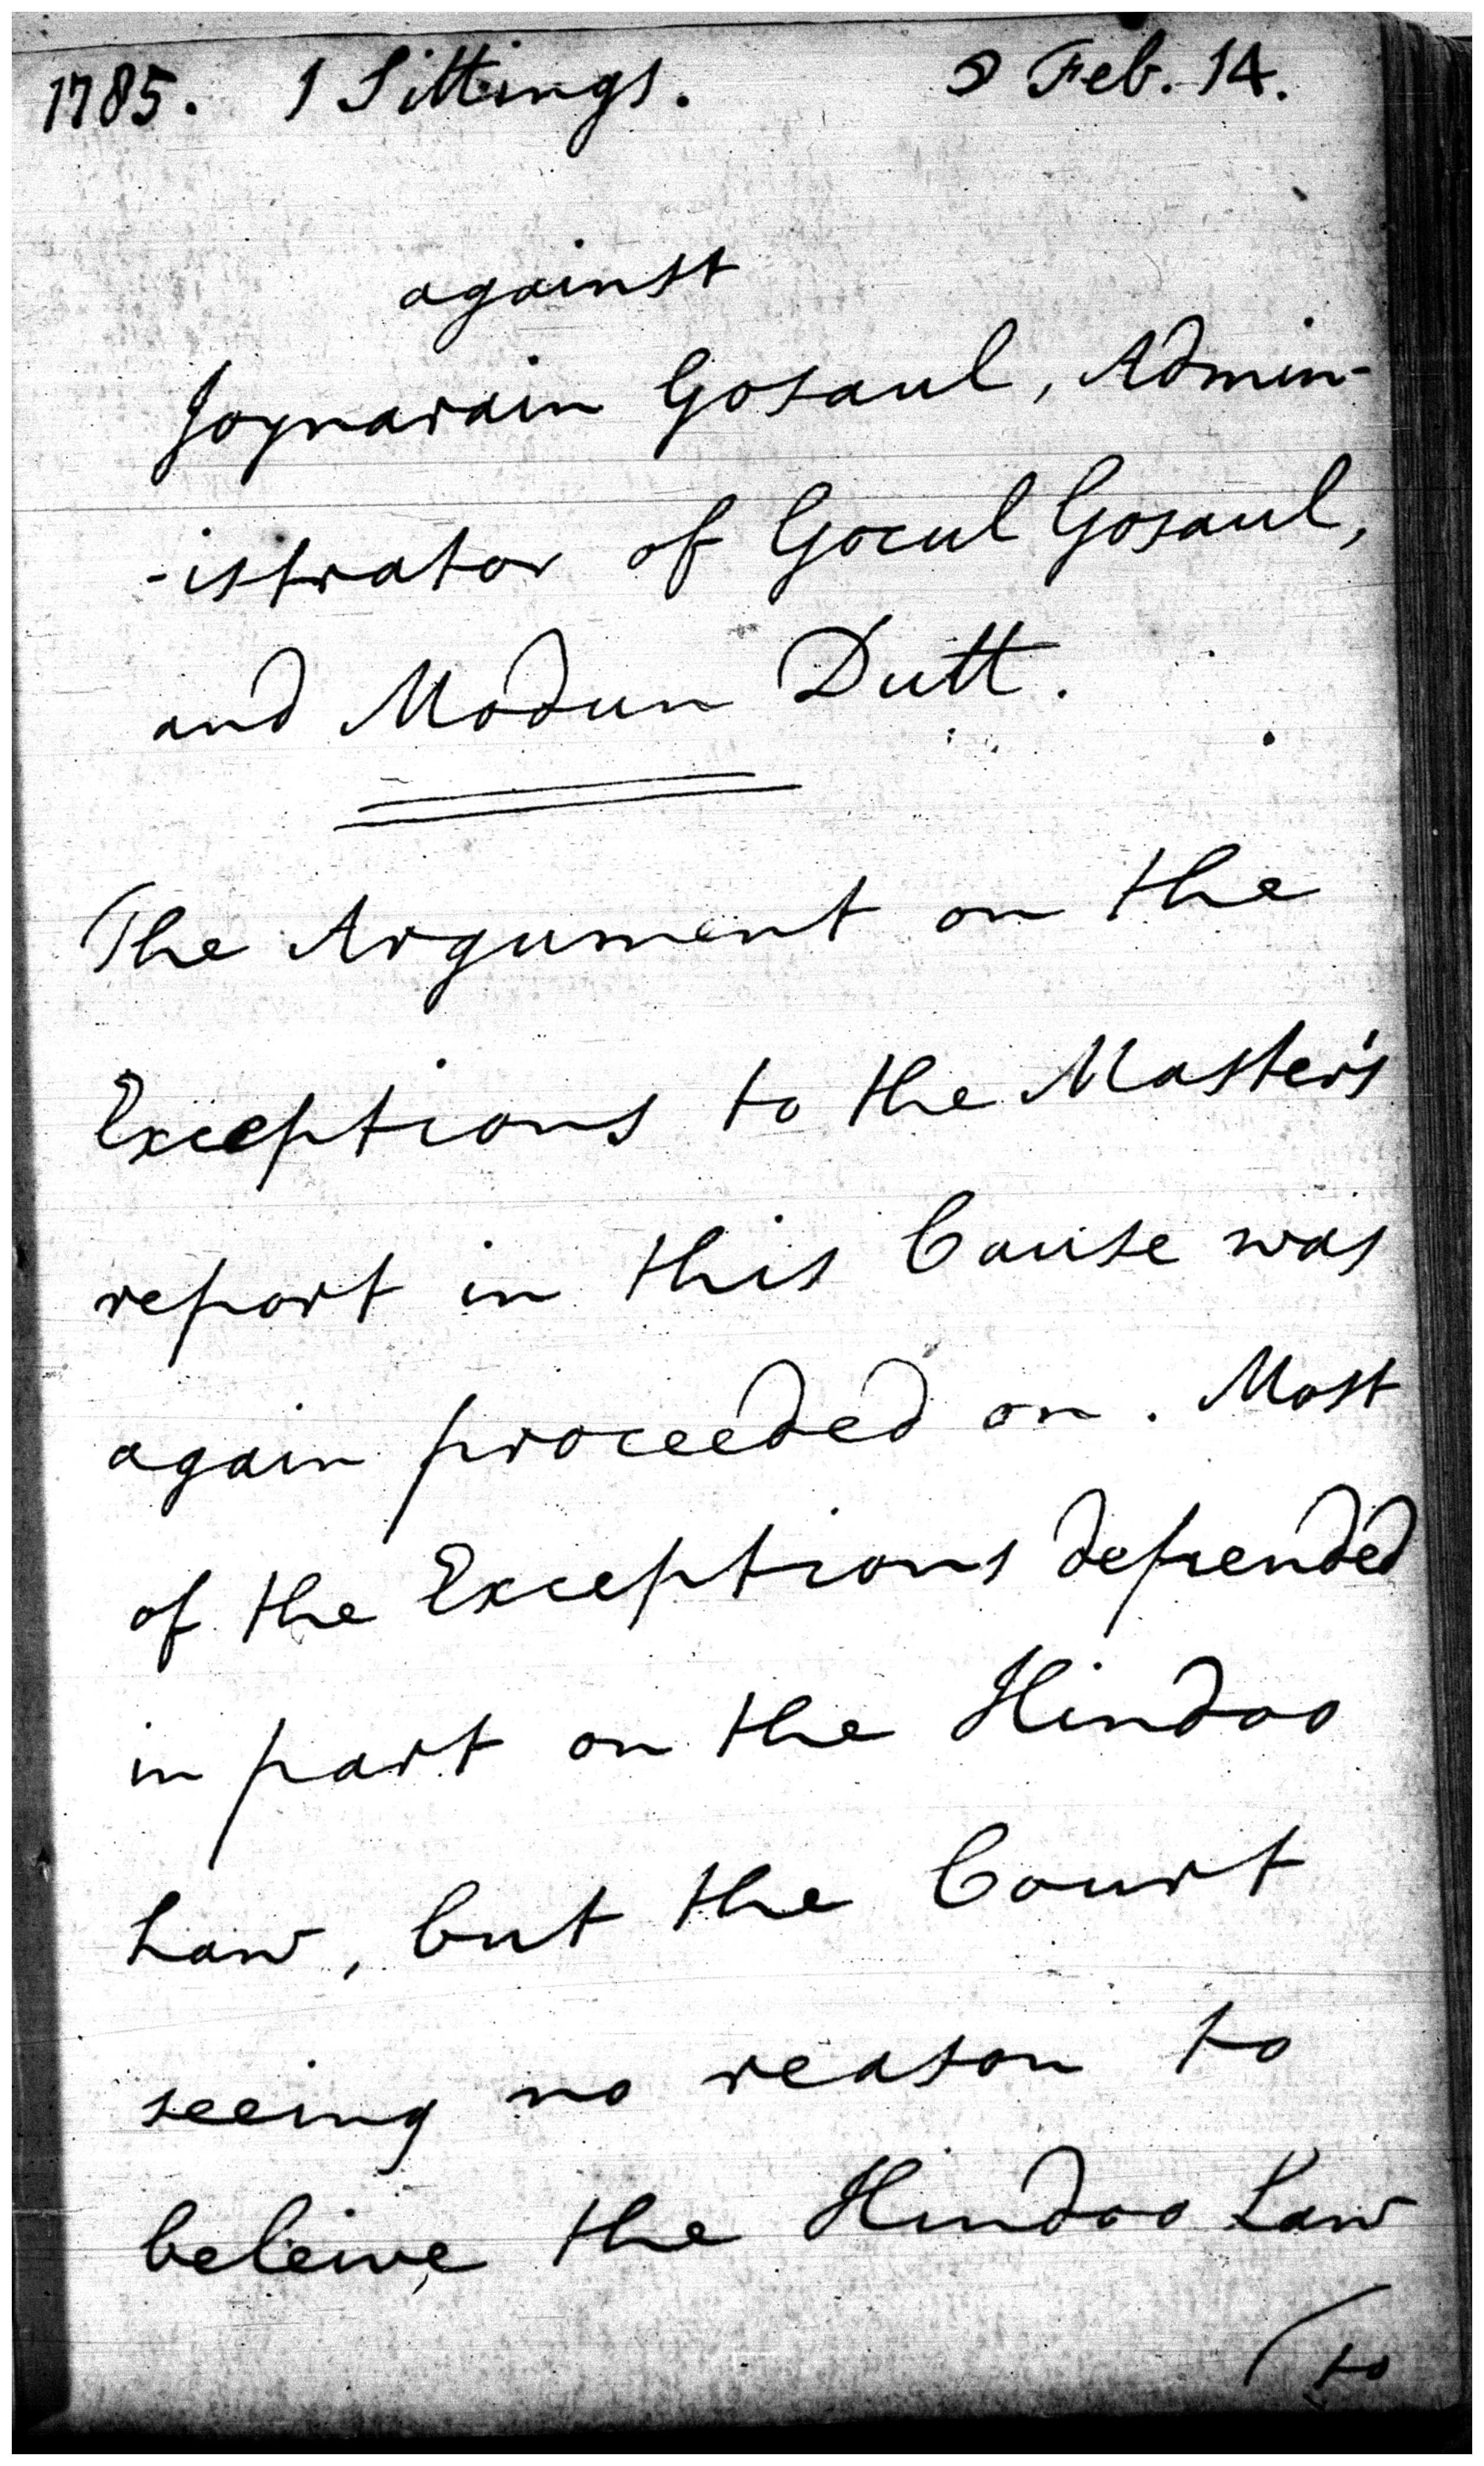 1785. 1 Sittings. Feb. 14.
against
Joynarain Gosaul, Admin-
-istrator of Gocul Gosaul,
and Modun Dutt.
The Argument on the
Exceptions to the Master's
report in this Cause was
again proceeded on. Most
of the Exceptions depended
in part on the Hindoo
Law, but the Court
seeing no reason to
beleive the Hindoo Law
(to